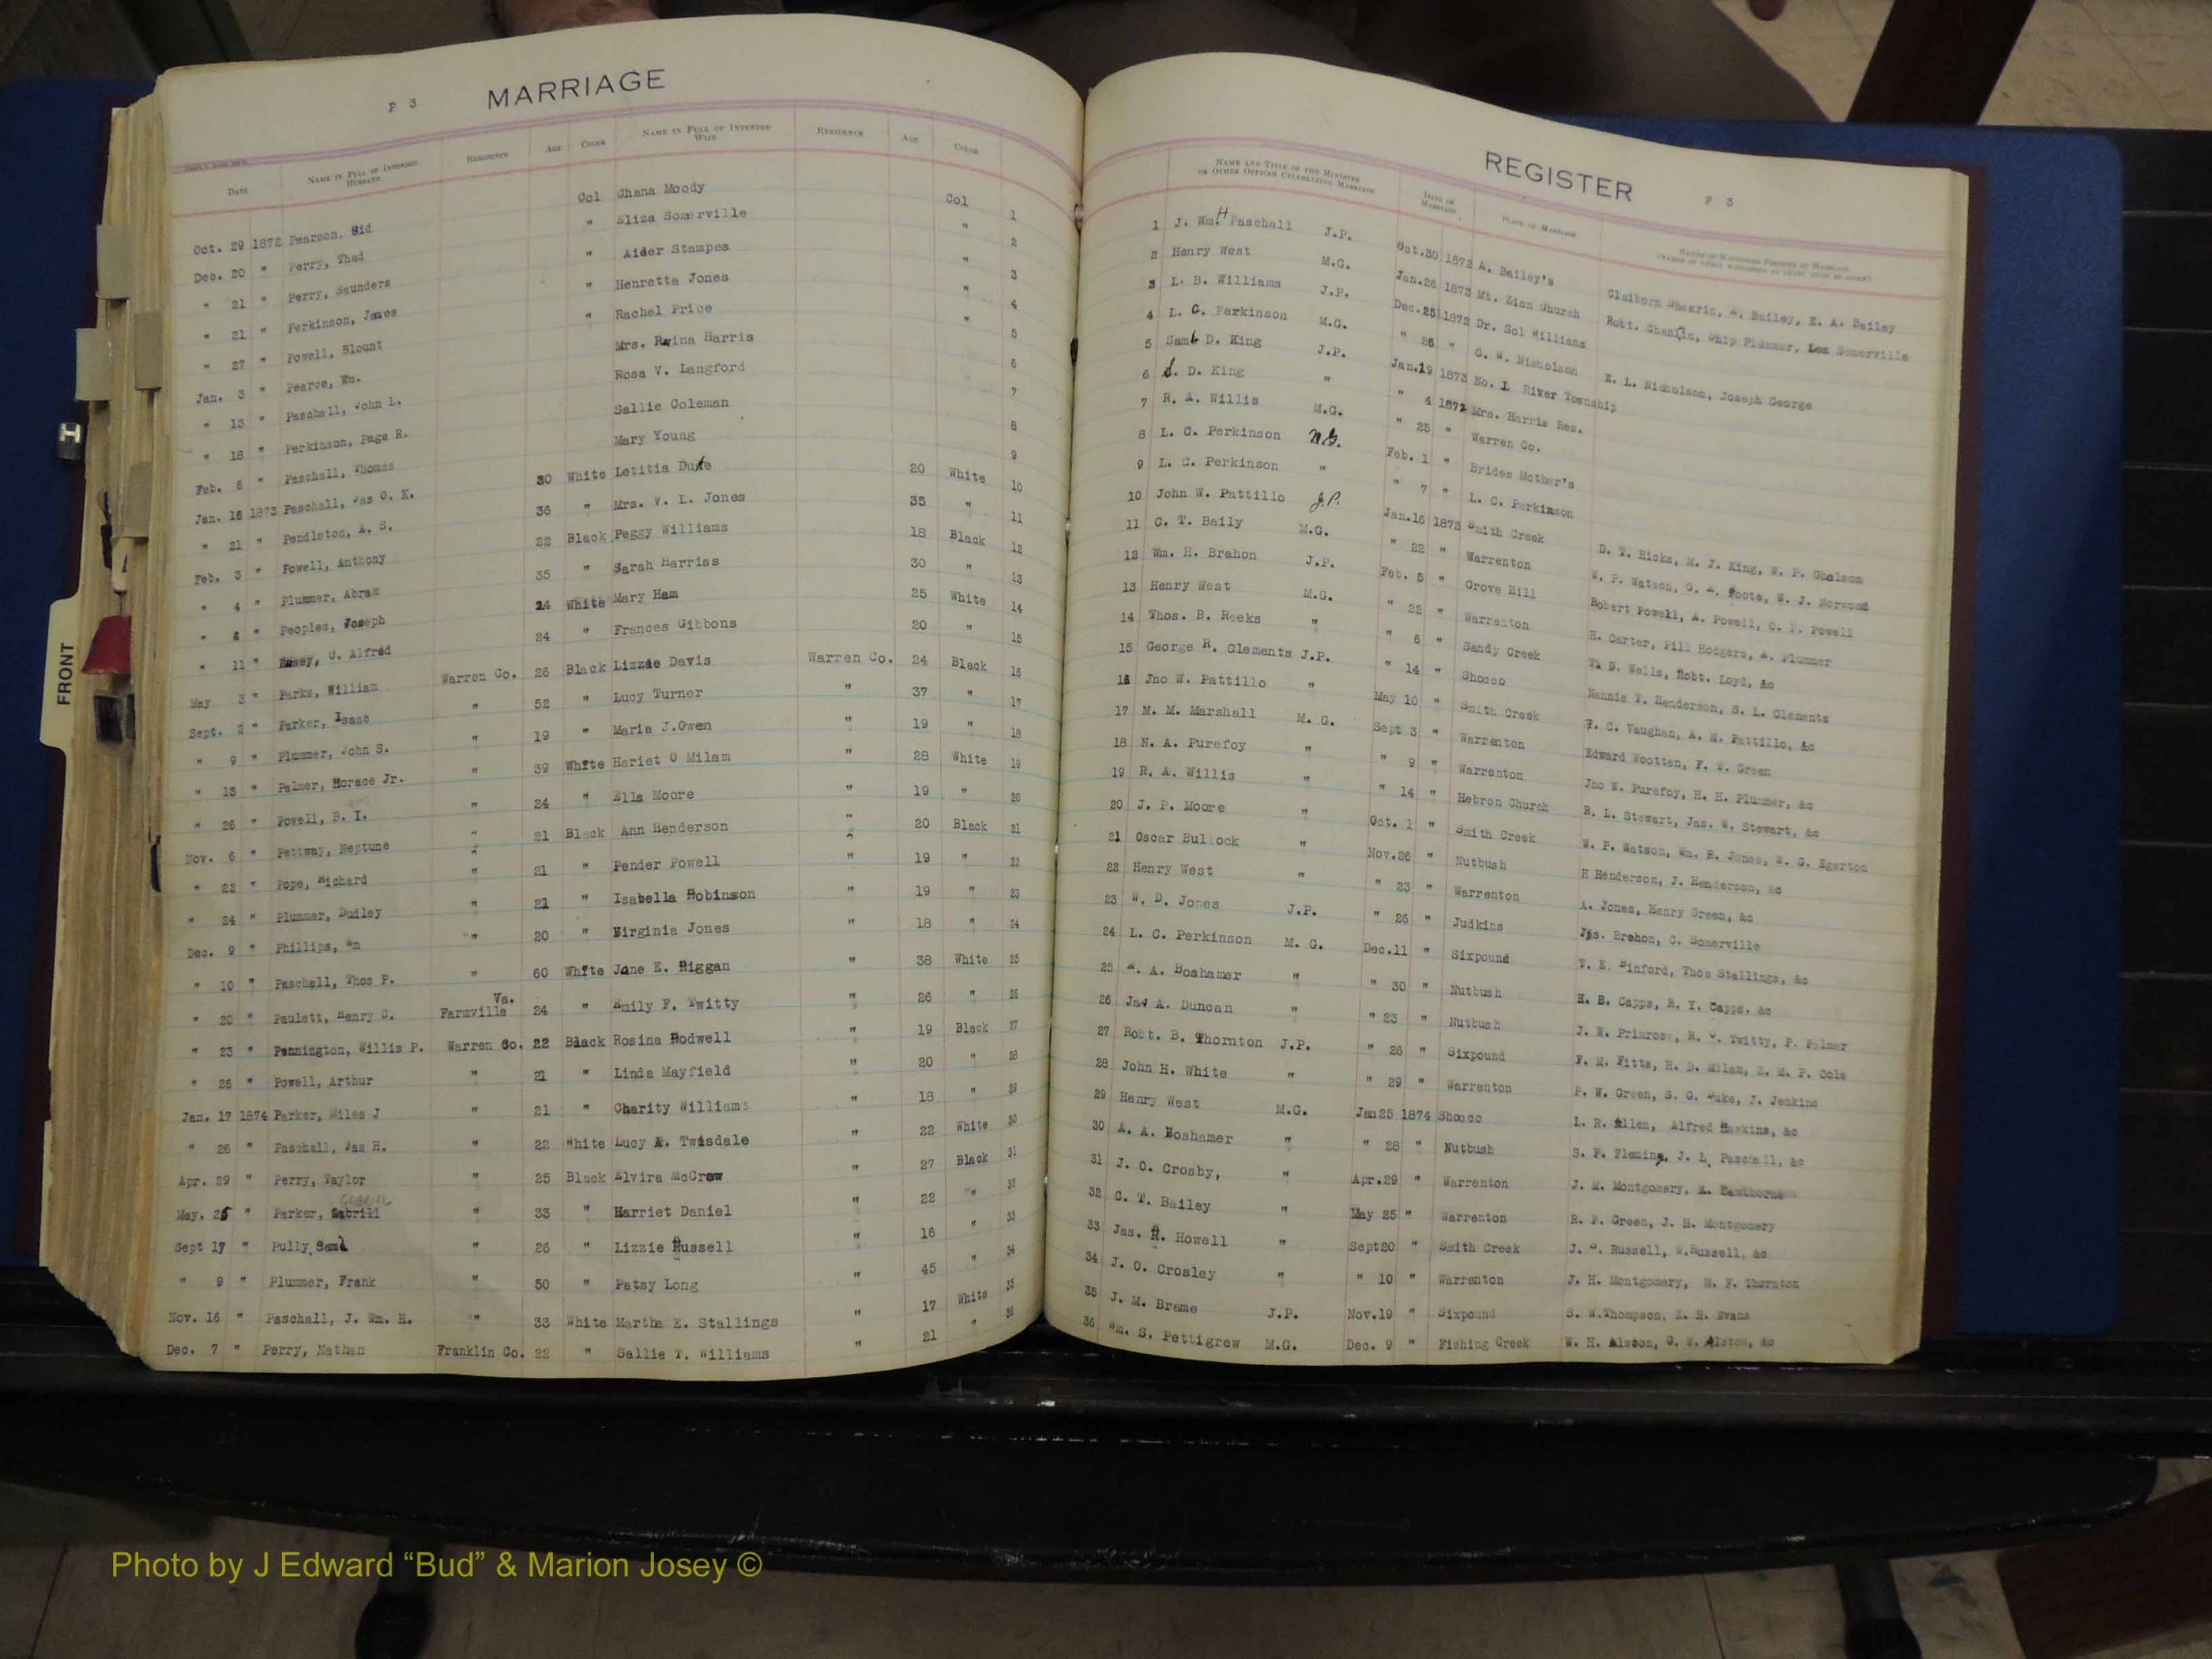 P 3 MARRIAGE
DATE NAME IN FULL OF INTENDED HUSBAND RESIDENCE AGE COLOR NAME IN FULL OF INTENDED WIFE RESIDENCE AGE COLOR
Oct. 29 1872 Pearson, Sid Col Chana Moody Col 1
Dec. 20 " Perry, Thad " Eliza Somerville " 2
" 21 " Perry, Saunders " Aider Stampes " 3
" 21 " Perkinson, James " Henretta Jones " 4
" 27 " Powell, Blount " Rachel Price " 5
Jan. 3 " Pearce, Wm. Mrs. Raina Harris 6
" 13 " Paschall, John L. Rosa V. Langford 7
" 18 " Perkinson, Page R. Sallie Coleman 8
Feb. 6 " Paschall, Thomas Mary Young 9
Jan. 16 1873 Paschall, Jas O. K. 30 White Letitia Duke 20 White 10
" 21 " Pendleton, A. S. 36 " Mrs. V. L. Jones 35 " 11
Feb. 3 " Powell, Anthony 22 Black Peggy Williams 18 Black 12
" 4 " Plummer, Abram 35 " Sarah Harriss 30 " 13
" " Peoples, Joseph 24 White Mary Ham 25 White 14
" 11 " C. Alfred 24 " Frances Gibbons 20 " 15
May 3 " Parks, William Warren Co. 26 Black Lizzie Davis Warren Co. 24 Black 16
Sept. 2 " Parker, Isaac " 52 " Lucy Turner " 37 " 17
" 9 " Plummer, John S. " 19 " Maria J. Owen " 19 " 18
" 13 " Palmer, Horace Jr. " 39 White Hariet O Milam " 28 White 19
" 26 " Powell, B. I. " 24 " Ella Moore " 19 " 20
Nov. 6 " Pettway, Neptune " 21 Black Ann Henderson " 20 Black 21
" 22 " Pope, Richard " 21 " Pender Powell " 19 " 22
" 24 " Plummer, Dudley " 21 " Isabella Robinson " 19 " 23
Dec. 9 " Phillips, Wm " 20 " Virginia Jones " 18 " 24
" 10 " Paschall, Thos P. " 60 White Jane E. Riggan " 38 White 25
" 20 " Paulett, Henry C. Va. Farmville 24 " Emily F. Twitty " 26 " 26
" 23 " Pennington, Willis P. Warren Co. 22 Black Rosina Rodwell " 19 Black 27
" 26 " Powell, Arthur " 21 " Linda Mayfield " 20 " 28
Jan. 17 1874 Parker, Miles J " 21 " Charity Williams " 18 " 29
" 26 " Paschall, Jas H. " 22 White Lucy A. Twisdale " 22 White 30
Apr. 29 " Perry, Taylor " 25 Black Elvira McCraw " 27 Black 31
May. 25 " Parker, " 33 " Harriet Daniel " 22 " 32
Sept 17 " Pully, Saml " 26 " Lizzie Russell " 16 " 33
" 9 " Plummer, Frank " 50 " Patsy Long " 45 " 34
Nov. 16 " Paschall, J. Wm. H. " 33 White Martha E. Stallings " 17 White 35
Dec. 7 " Perry, Nathan Franklin Co. 22 " Sallie T. Williams " 21 " 36
REGISTER P 3
NAME AND TITLE OF THE MINISTER OR OTHER OFFICER CELEBRATING MARRIAGE DATE OF MARRIAGE PLACE OF MARRIAGE
1 J. Wm. H Paschall J.P. Oct.30 1872 A. Bailey's Claiborn Shearin, A. Bailey, E. A. Bailey
2 Henry West M.G. Jan.26 1873 Mt. Zion Church Robt. Ship Plummer, Len Somerville
3 L. B. Williams J.P. Dec.25 1872 Dr. Sol Williams
4 L. C. Perkinson M.G. " 26 " G. W. Nicholson E. L. Nicholson, Joseph George
5 Saml D. King J.P. Jan.19 1873 No. 1 River Township
6 S. D. King " " 4 1872 Mrs. Harris Res.
7 R. A. Willis M.G. " 25 " Warren Co.
8 L. C. Perkinson M.G. Feb. 1 " Brides Mother's
9 L. C. Perkinson " " 7 " L. C. Perkinson
10 John W. Pattillo J.P. Jan.16 1873 Smith Creek D. T. Hicks, M. J. King, W. P. Cholson
11 C. T. Baily M.G. " 22 " Warrenton W. P. Watson, G. A. Foote, W. J. Norwood
12 Wm. H. Brahon J.P. Feb. 5 " Grove Hill Robert Powell, A. Powell, O. P. Powell
13 Henry West M.G. " 22 " Warrenton H. Carter, Pill Hodgers, A. Plummer
14 Thos. B. Reeks " " 6 " Sandy Creek T. B. Wells, Robt. Loyd, &c
15 George R. Clements J.P. " 14 " Shocco Nannie T. Henderson, S. L. Clements
16 Jno W. Pattillo " May 10 " Smith Creek F. C. Vaughan, A. M. Pattillo, &c
17 M. M. Marshall M. G. Sept 3 " Warrenton Edward Wootten, F. T. Green
18 N. A. Purefoy " " 9 " Warrenton Jno W. Purefoy, H. H. Plummer, &c
19 R. A. Willis " " 14 " Hebron Church R. L. Stewart, Jas. W. Stewart, &c
20 J. P. Moore " Oct. 1 " Smith Creek W. P. Watson, Wm. E. Jones, W. G. Egerton
21 Oscar Bullock " Nov.26 " Nutbush H Henderson, J. Henderson, &c
22 Henry West " " 23 " Warrenton A. Jones, Henry Green, &c
23 W. D. Jones J.P. " 26 " Judkins Jas. Brehon, C. Somerville
24 L. C. Perkinson M. G. Dec.11 " Sixpound T. E. Binford, Thos Stallings, &c
25 A. A. Boshamer " " 30 " Nutbush H. B. Capps, R. Y. Capps. &c
26 Jas A. Duncan " " 23 " Nutbush J. W. Primrose, R. Twitty, P. Palmer
27 Robt. B. Thornton J.P. " 26 " Sixpound F. M. Fitts, H. D. Milam, E. M. P. Cole
28 John H. White " " 29 " Warrenton P. W. Green, S. G. Duke, J. Jenkins
29 Henry West M.G. Jan 25 1874 Shocco L. R. Allen, Alfred Hawkins, &c
30 A. A. Boshamer " " 28 " Nutbush S. P. Fleming, J. L. Paschall, &c
31 J. O. Crosby, " Apr.29 " Warrenton J. M. Montgomery, Hawthorne
32 C. T. Bailey " May 25 " Warrenton R. P. Green, J. H. Montgomery
33 Jas. R. Howell " Sept20 " Smith Creek J. Russell, W. Russell, &c
34 J. O. Crosley " " 10 " Warrenton J. H. Montgomery, M. F. Thornton
35 J. M. Brame J.P. Nov.19 " Sixpound S. W. Thompson, E. H. Evans
36 Wm. S. Pettigrew M.G. Dec. 9 " Fishing Creek W. H. Alston, G. W. Alston, &c
FRONT
Photo by J Edward “Bud” & Marion Josey ©